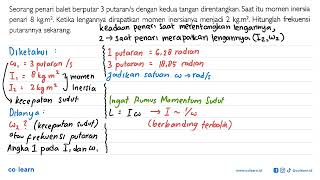 Seorang penari balet berputar 3 putaran/s dengan kedua tangan direntangkan. Saat itu momen inersia
penari 8 kg.m². Ketika lengannya dirapatkan momen inersianya menjadi 2 kg.m². Hitunglah frekuensi
putarannya sekarang.
keadaan penari saat merentangkan lengannya,
2 → saat penari merapatkan lengannya (I₂,ω₂)
Diketahui :
ω₁ = 3 putaran /s
I₁ = 8 kg m²
I₂ = 2 kg m²
momen
Inersia
(kecepatan sudut)
Ditanya :
ω₂ ? (kecepatan sudut)
atau frekuensi putaran
Angka 1 pada I, dan ω,
1 putaran = 6,28 radian
3 putaran = 18,85 radian
jadikan satuan ω → rad/s
Ingat Rumus Momentum Sudut
L = I ω → I ~ 1/ω
(berbanding terbalik)
co learn
www.colearn.id
@colearn.id